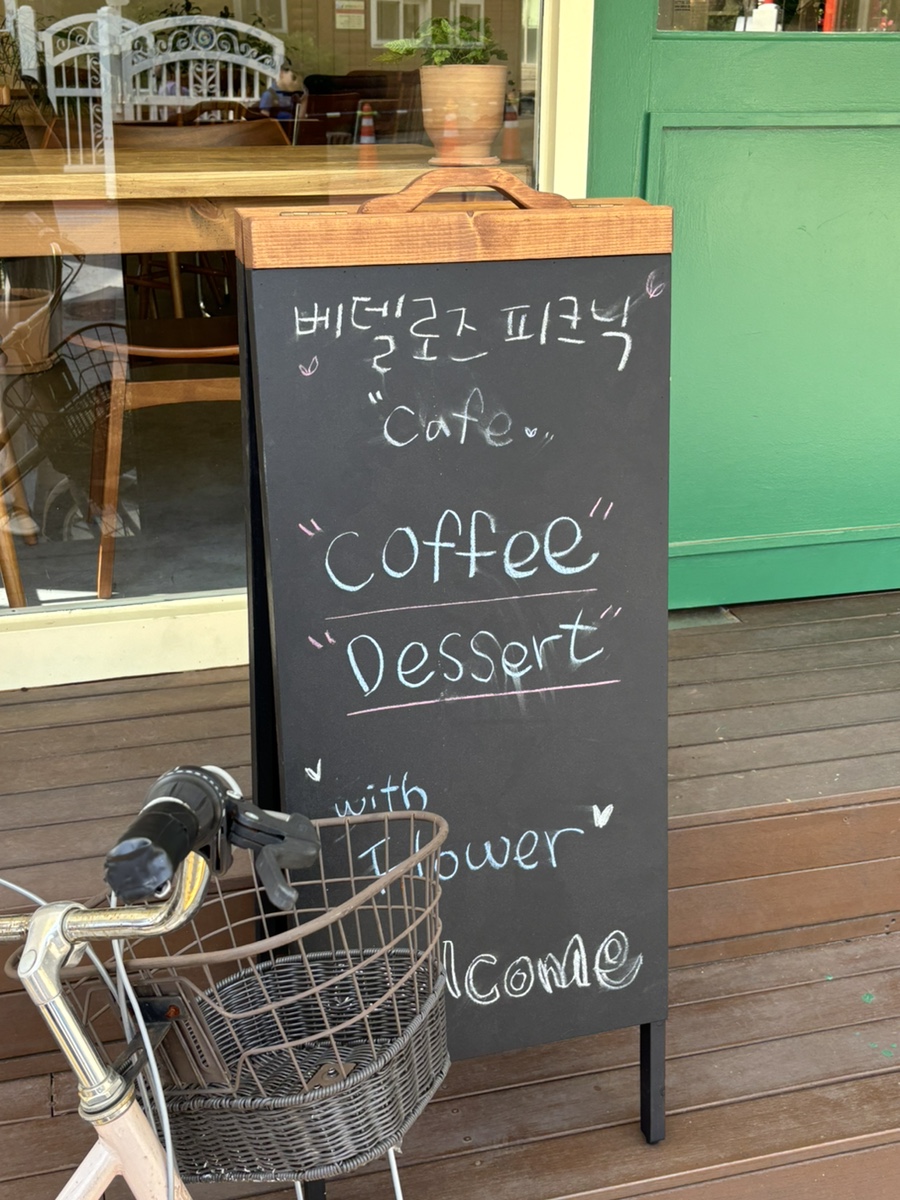 베델로즈 피크닉
"Cafe
"Coffee"
"Dessert"
with
Flower"
lcome